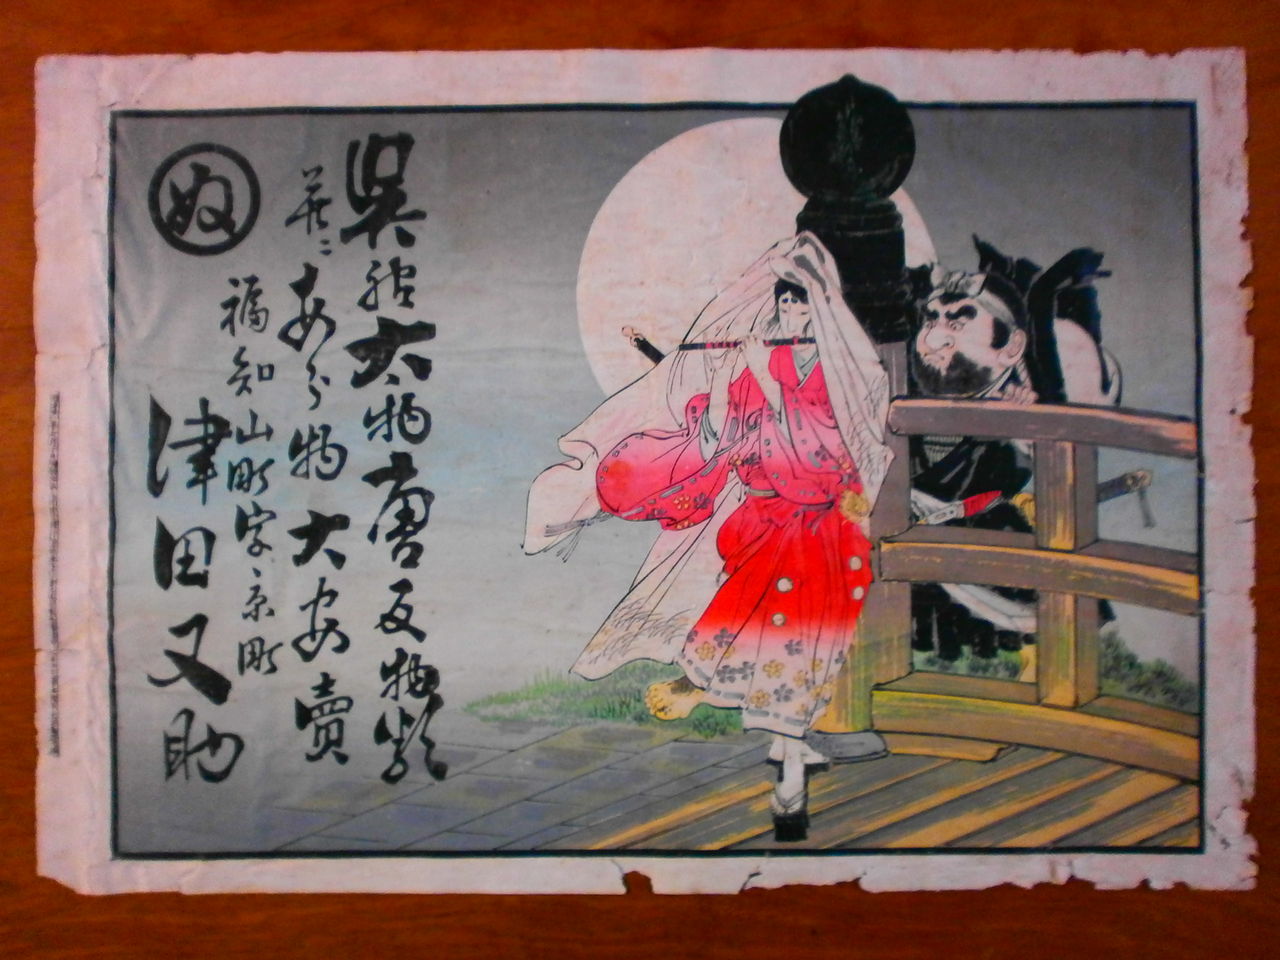 呉服太物唐反物類
並ニあら物大安賣
福知山町字京町
津田又助
奴